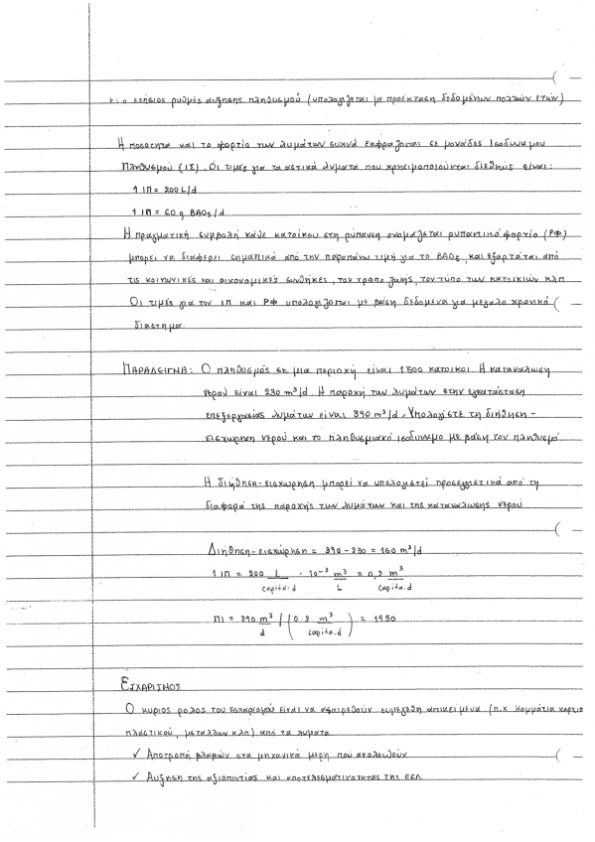 r: ο ετήσιος ρυθμός αύξησης πληθυσμού (υπολογίζεται με προέκταση δεδομένων πολλών ετών)
Η ποσότητα και το φορτίο των λυμάτων συχνά εκφράζεται σε μονάδες Ισοδύναμου
Πληθυσμού (ΙΣ). Οι τιμές για τα αστικά λύματα που χρησιμοποιούνται διεθνώς είναι:
1 ΙΠ = 200 L/d
1 ΙΠ = 60 g BAO₅/d
Η πραγματική συμβολή κάθε κατοίκου στη ρύπανση ονομάζεται ρυπαντικό φορτίο (ΡΦ)
μπορεί να διαφέρει σημαντικά από την παραπάνω τιμή για το BAO₅ και εξαρτάται από
τις κοινωνικές και οικονομικές συνθήκες, τον τρόπο ζωής, τον τύπο των κατοικιών κλπ
Οι τιμές για τον ΙΠ και ΡΦ υπολογίζεται με βάση δεδομένα για μεγάλο χρονικό
διάστημα
ΠΑΡΑΔΕΙΓΜΑ: Ο πληθυσμός σε μια περιοχή είναι 1500 κάτοικοι. Η κατανάλωση
νερού είναι 230 m³/d. Η παροχή των λυμάτων στην εγκατάσταση
επεξεργασίας λυμάτων είναι 390 m³/d. Υπολογίστε τη διήθηση-
εισχώρηση νερού και το πληθυσμιακό ισοδύναμο με βάση τον πληθυσμό
Η διήθηση-εισχώρηση μπορεί να υπολογιστεί προσεγγιστικά από τη
διαφορά της παροχής των λυμάτων και της κατανάλωσης νερού
Διήθηση-εισχώρηση = 390-230 = 160 m³/d
1 ΙΠ = 200 L/capita.d · 10⁻³ m³/L = 0,2 m³/capita.d
ΠΙ = 390 m³/d / (0.2 m³/capita.d) = 1950
ΕΣΧΑΡΙΣΜΟΣ
Ο κύριος ρόλος του εσχαρισμού είναι να αφαιρεθούν ευμεγέθη αντικείμενα (π.χ κομμάτια χαρτιο
πλαστικού, μετάλλων κλπ) από τα λύματα
✓ Αποτροπή βλαβών στα μηχανικά μέρη που ακολουθούν
✓ Αύξηση της αξιοπιστίας και αποτελεσματικότητας της ΕΕΛ